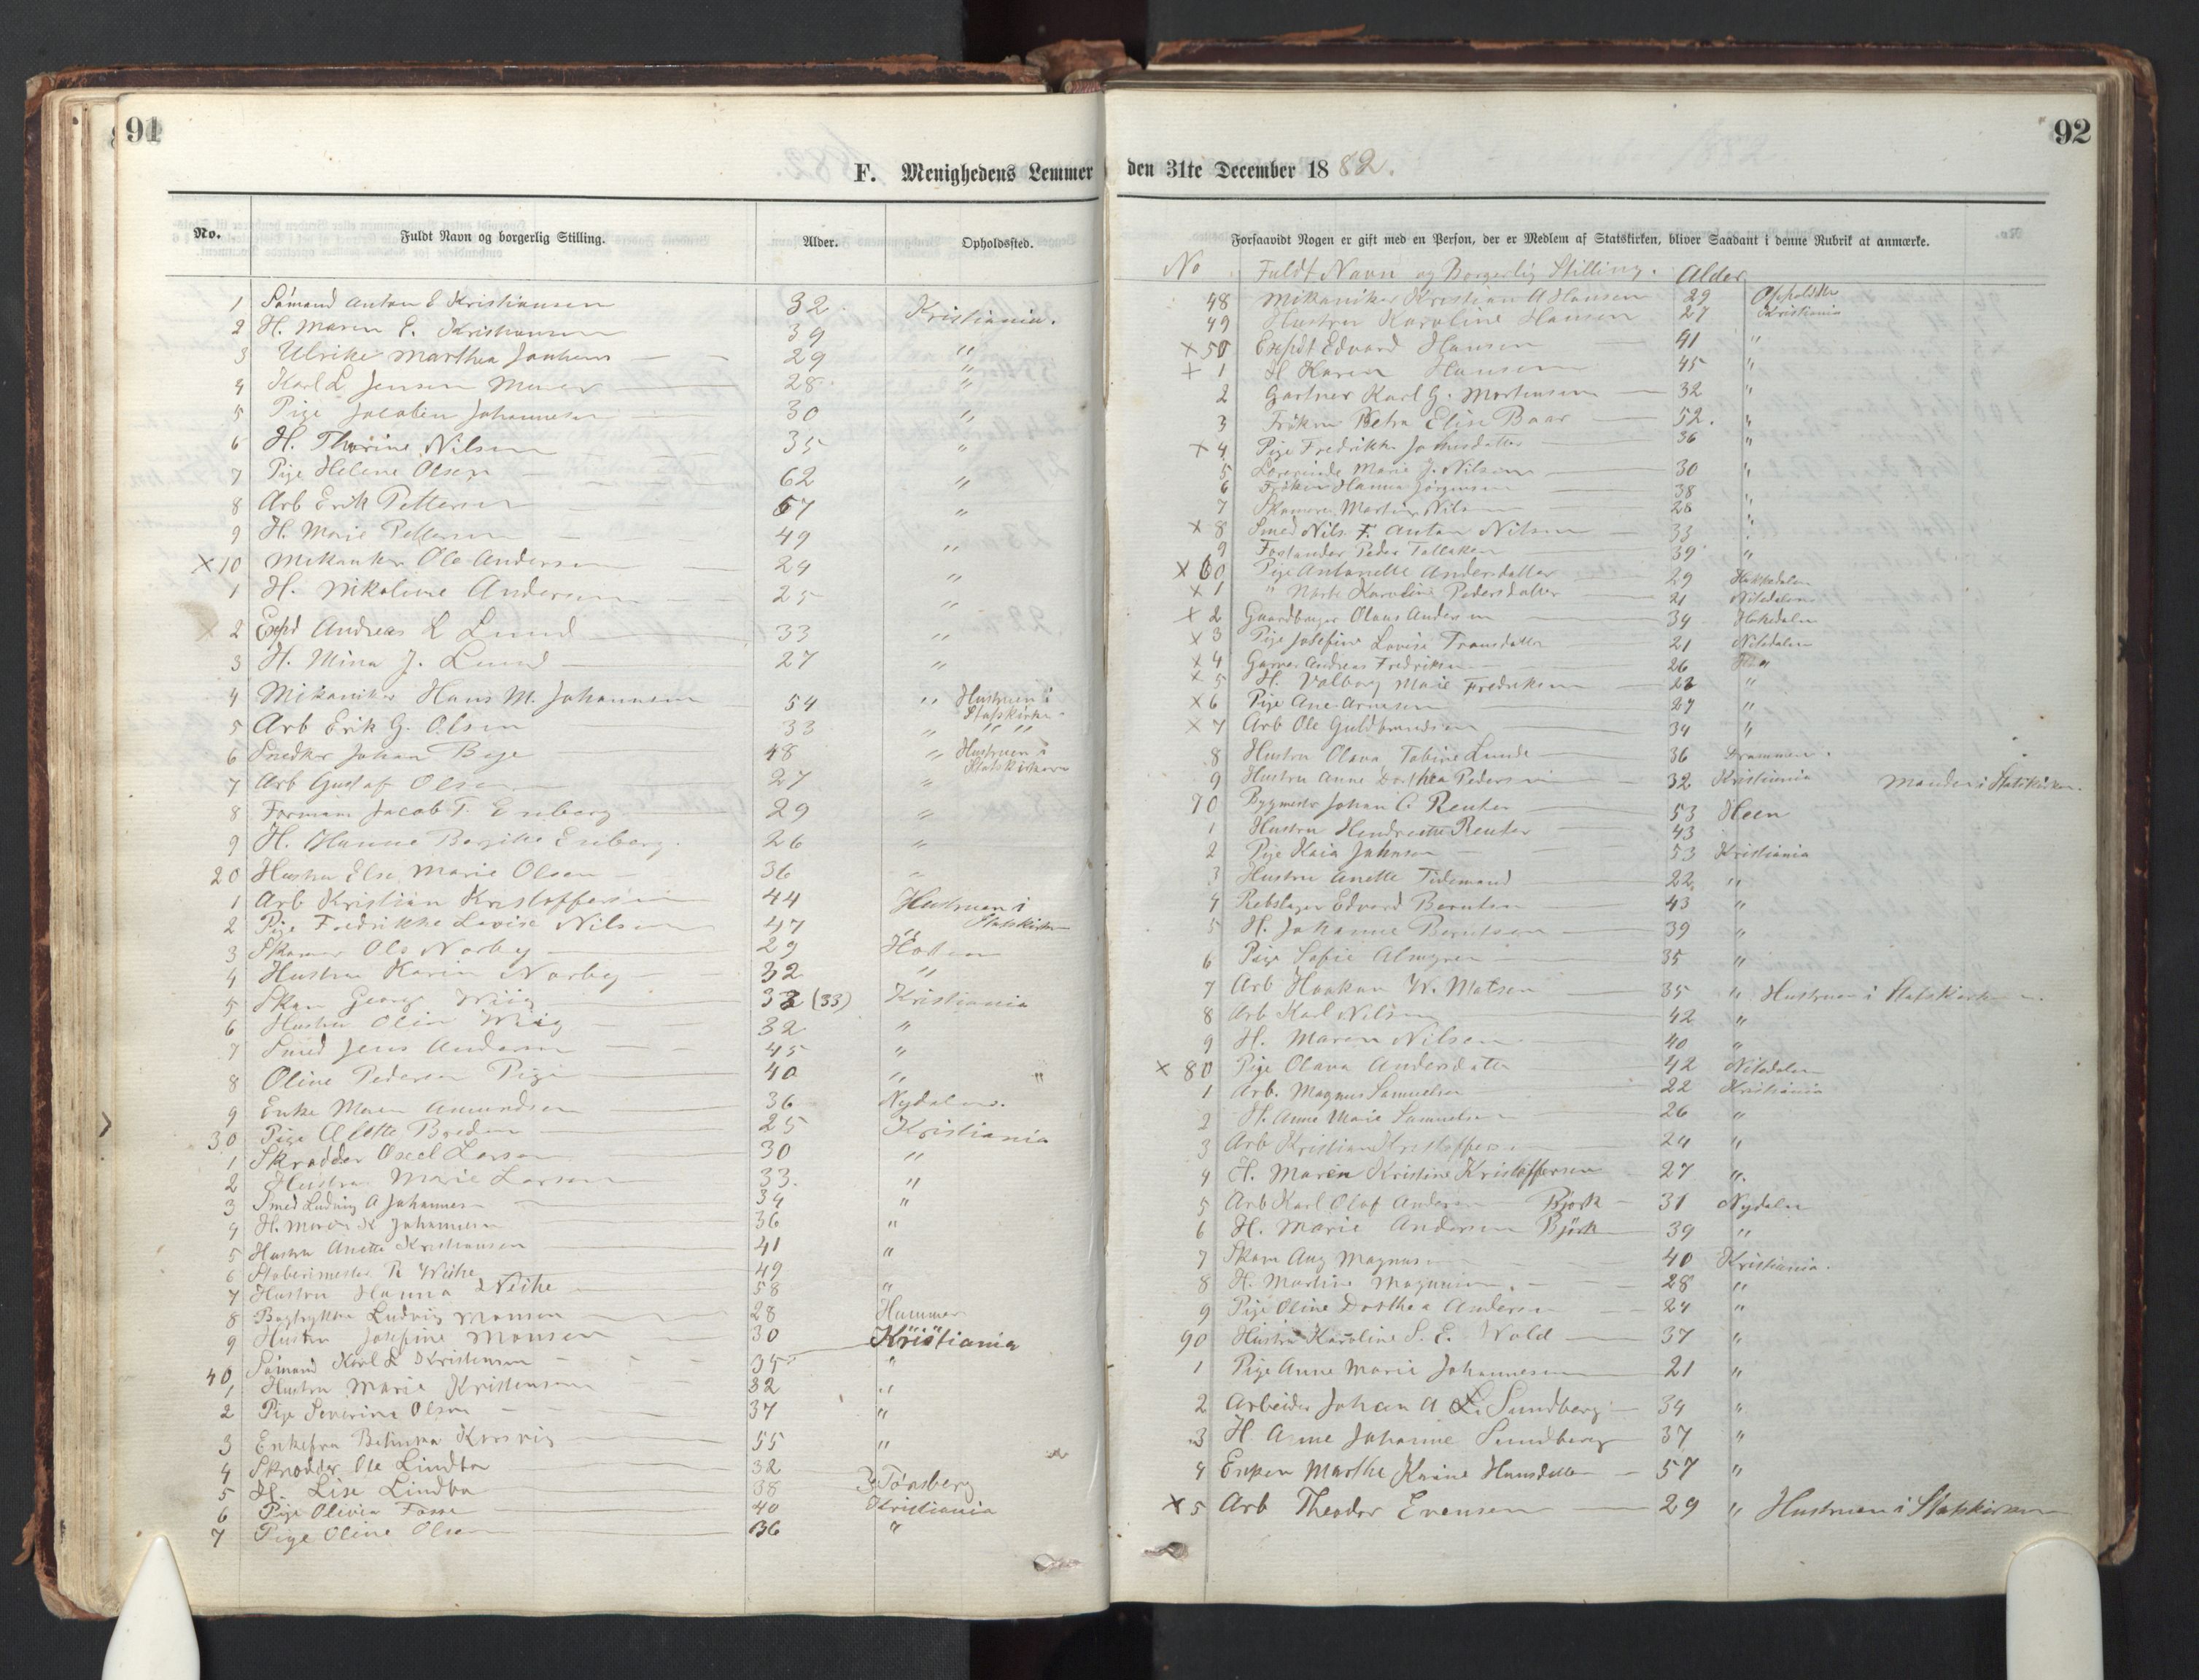 91
F. Menighedens Lemmer
No.
Fuldt Navn og borgerlig Stilling.
Alder.
Opholdssted.
1 Sömand Anton E Kristiansen 32 Kristiania.
2 H. Maren E. Kristiansen 39
3 Ulrike Marthea 29 "
4 Karl L Jensen 28 "
5 Pige Jacobin Johannesen 30 "
6 H. Thorine Nilsen 35 "
7 Pige Helene Olsen 62 "
8 Arb Erik Pettersen 57 "
9 H. Marie Pettersen 49 "
×10 Mekaniker Ole Andersen 24
1 H. Nikoline Andersen 25 "
× 2 Expd Andreas L Lund 33 "
3 H. Mina J. Lund 27 "
4 Mekaniker Hans M. Johannesen 54 " Hustruen i Statskirken
5 Arb Erik G. Olsen 33 " " "
6 Snedker Johan Beje 48 " Hustruen i Statskirken
7 Arb Gustaf Olsen 27 "
8 Formand Jacob T. Enberg 29 "
9 H. Hanna Bergitte Enberg. 26 "
20 Hustru Else Marie Olsen 36 "
1 Arb Kristian Kristoffersen 44 Hustruen i Statskirken
2 Pige Fredrikke Lovise Nilsen 47 "
3 Skomer Ole Norby 29 Horten
4 Hustru Karin Norby 32 "
5 Skom Georg Wiig 33 (33) Kristiania
6 Hustru Olin Wiig 32 "
7 Smed Jens Andersen 45 "
8 Oline Pedersen Pige 40 " "
9 Enke Maren Amundsen 36 Nydalen.
30 Pige Alette Bredesen 25 Kristiania
1 Skrædder Oscel Larsen 30 "
2 Hustru Marie Larsen 33. "
3 Smed Ludvig A Johannesen 34 "
4 H. Maren K Johannesen 36 "
5 Hustru Anette Kristiansen 41 "
6 Støberimester R Weihe 49
7 Hustru Hanna Weihe 58 "
8 Bogtrykker Ludvig Monsen 28 Hammer
9 Hustru Josefine Monsen 30 Kristiania
40 Sömand Karl L Kristensen 35 "
1 Hustru Marie Kristensen 32 "
2 Pige Severine Olsen 37 "
3 Enkefru 55 "
4 Skrædder Ole Lindbo 32
5 H. Lise Lindbo 38 Tönsberg
6 Pige Olivia Fosse 40 Kristiania
7 Pige Oline Olsen 36 "
92
den 31te December 1882.
Forsaavidt Nogen er gift med en Person, der er Medlem af Statskirken, bliver Saadant i denne Rubrik at anmærke.
No Fuldt Navn og Borgerlig Stilling. Alder
48 Mekaniker Kristian A Hansen 29 Opholdste
49 Hustru Karoline Hansen 27 Kristiania
×50 Expdt Edvard Hansen 41 "
+ 1 H Karen Hansen 45 "
2 Gartner Karl G. Mortensen 32 "
3 Fröken Petra Elise Baar 52. "
× 4 Pige Fredrikke 36 "
5 Lærerinde Marie J. Nilsen 30 "
6 Fröken Hanna Jörgensen 38 "
7 Skomar Martin Nilsen 28 "
× 8 Smed Nils F. Anton Nilsen 33 "
9 Forstander Peder Tallaksen 39 "
×60 Pige Antonette Andersdatter 29 Hakkedalen
× 1 " Karoline Pedersdatter 21 Nitedalen
× 2 Gaardbruger Olaus Andersen 34 Hakedalen
× 3 Pige Josefine Lovise Fransdatter 21 Nitedalen
× 4 Garver Andreas Fredriksen 26
× 5 H. Valborg Marie Fredriksen 28 "
×6 Pige Ane Arnesen 27 "
×7 Arb Ole Guldbrandsen 34 "
8 Hustru Olava Tobine Lunde 36 Drammen.
9 Hustru Anne Dorthea Pedersen 32 Kristiania Manden i Statskirken.
70 Bygmestr Johan C Reuter 53 Heen
1 Hustru Hendriette Reuter 43
2 Pige Kaia Johnsen 53 Kristiania
3 Hustru Anette Tidemand 22 "
4 Rebslager Edvard Berntsen 43 "
5 H. Johanne Berntsen 39 "
6 Pige Sofie Almgren 35 "
7 Arb Haakon W. Matsen 35 " Hustruen i Statskirken.
8 Arb Karl Nilsen 42 "
9 H. Maren Nilsen 40 "
×80 Pige Olava Andersdatter 42 Nitedalen
1 Arb. Magnus Samuelsen 22 Kristiania
2 H. Anne Marie Samuelsen 26 "
3 Arb Kristian Kristoffersen 24 "
4 H. Maren Kristine Kristoffersen 27 "
5 Arb Karl Olof Andersen Bjork 31 Nydalen
6 H. Marie Andersen Björk 39 "
7 Skom Aug Magnusen 40 Kristiania.
8 H. Martine Magnusen 28 "
9 Pige Oline Dorthea Andersen 24 "
90 Hustru Karoline S. E. Wold 37 "
1 Pige Anne Marie Johannesen 21 "
2 Arbeider Johan A L. Sundberg 34 "
3 H. Anne Johanne Sundberg 37 "
4 Enken Marthe Karine Hansdatter 57 "
×5 Arb Theodor Evensen 29 " Hustruen i Statskirken